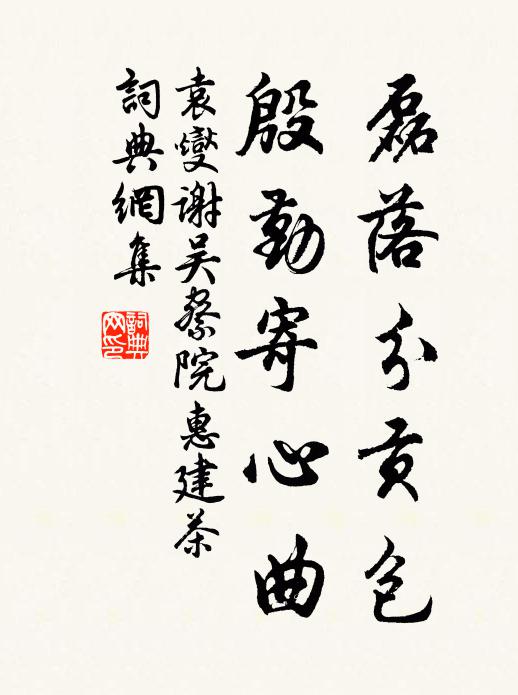 磊落分貢包
殷勤寄心曲
袁燮謝吴察院惠建茶
詞典網集
詞典網印